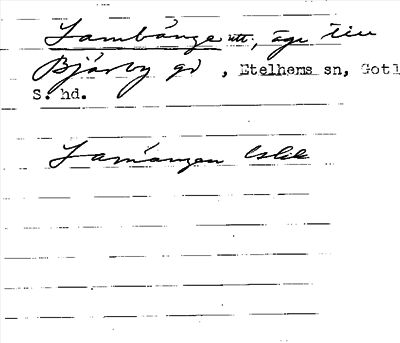 Lambänge utt., äga till
Bjärby gd , Etelhems sn, Gotl
S. hd.
Lamangen